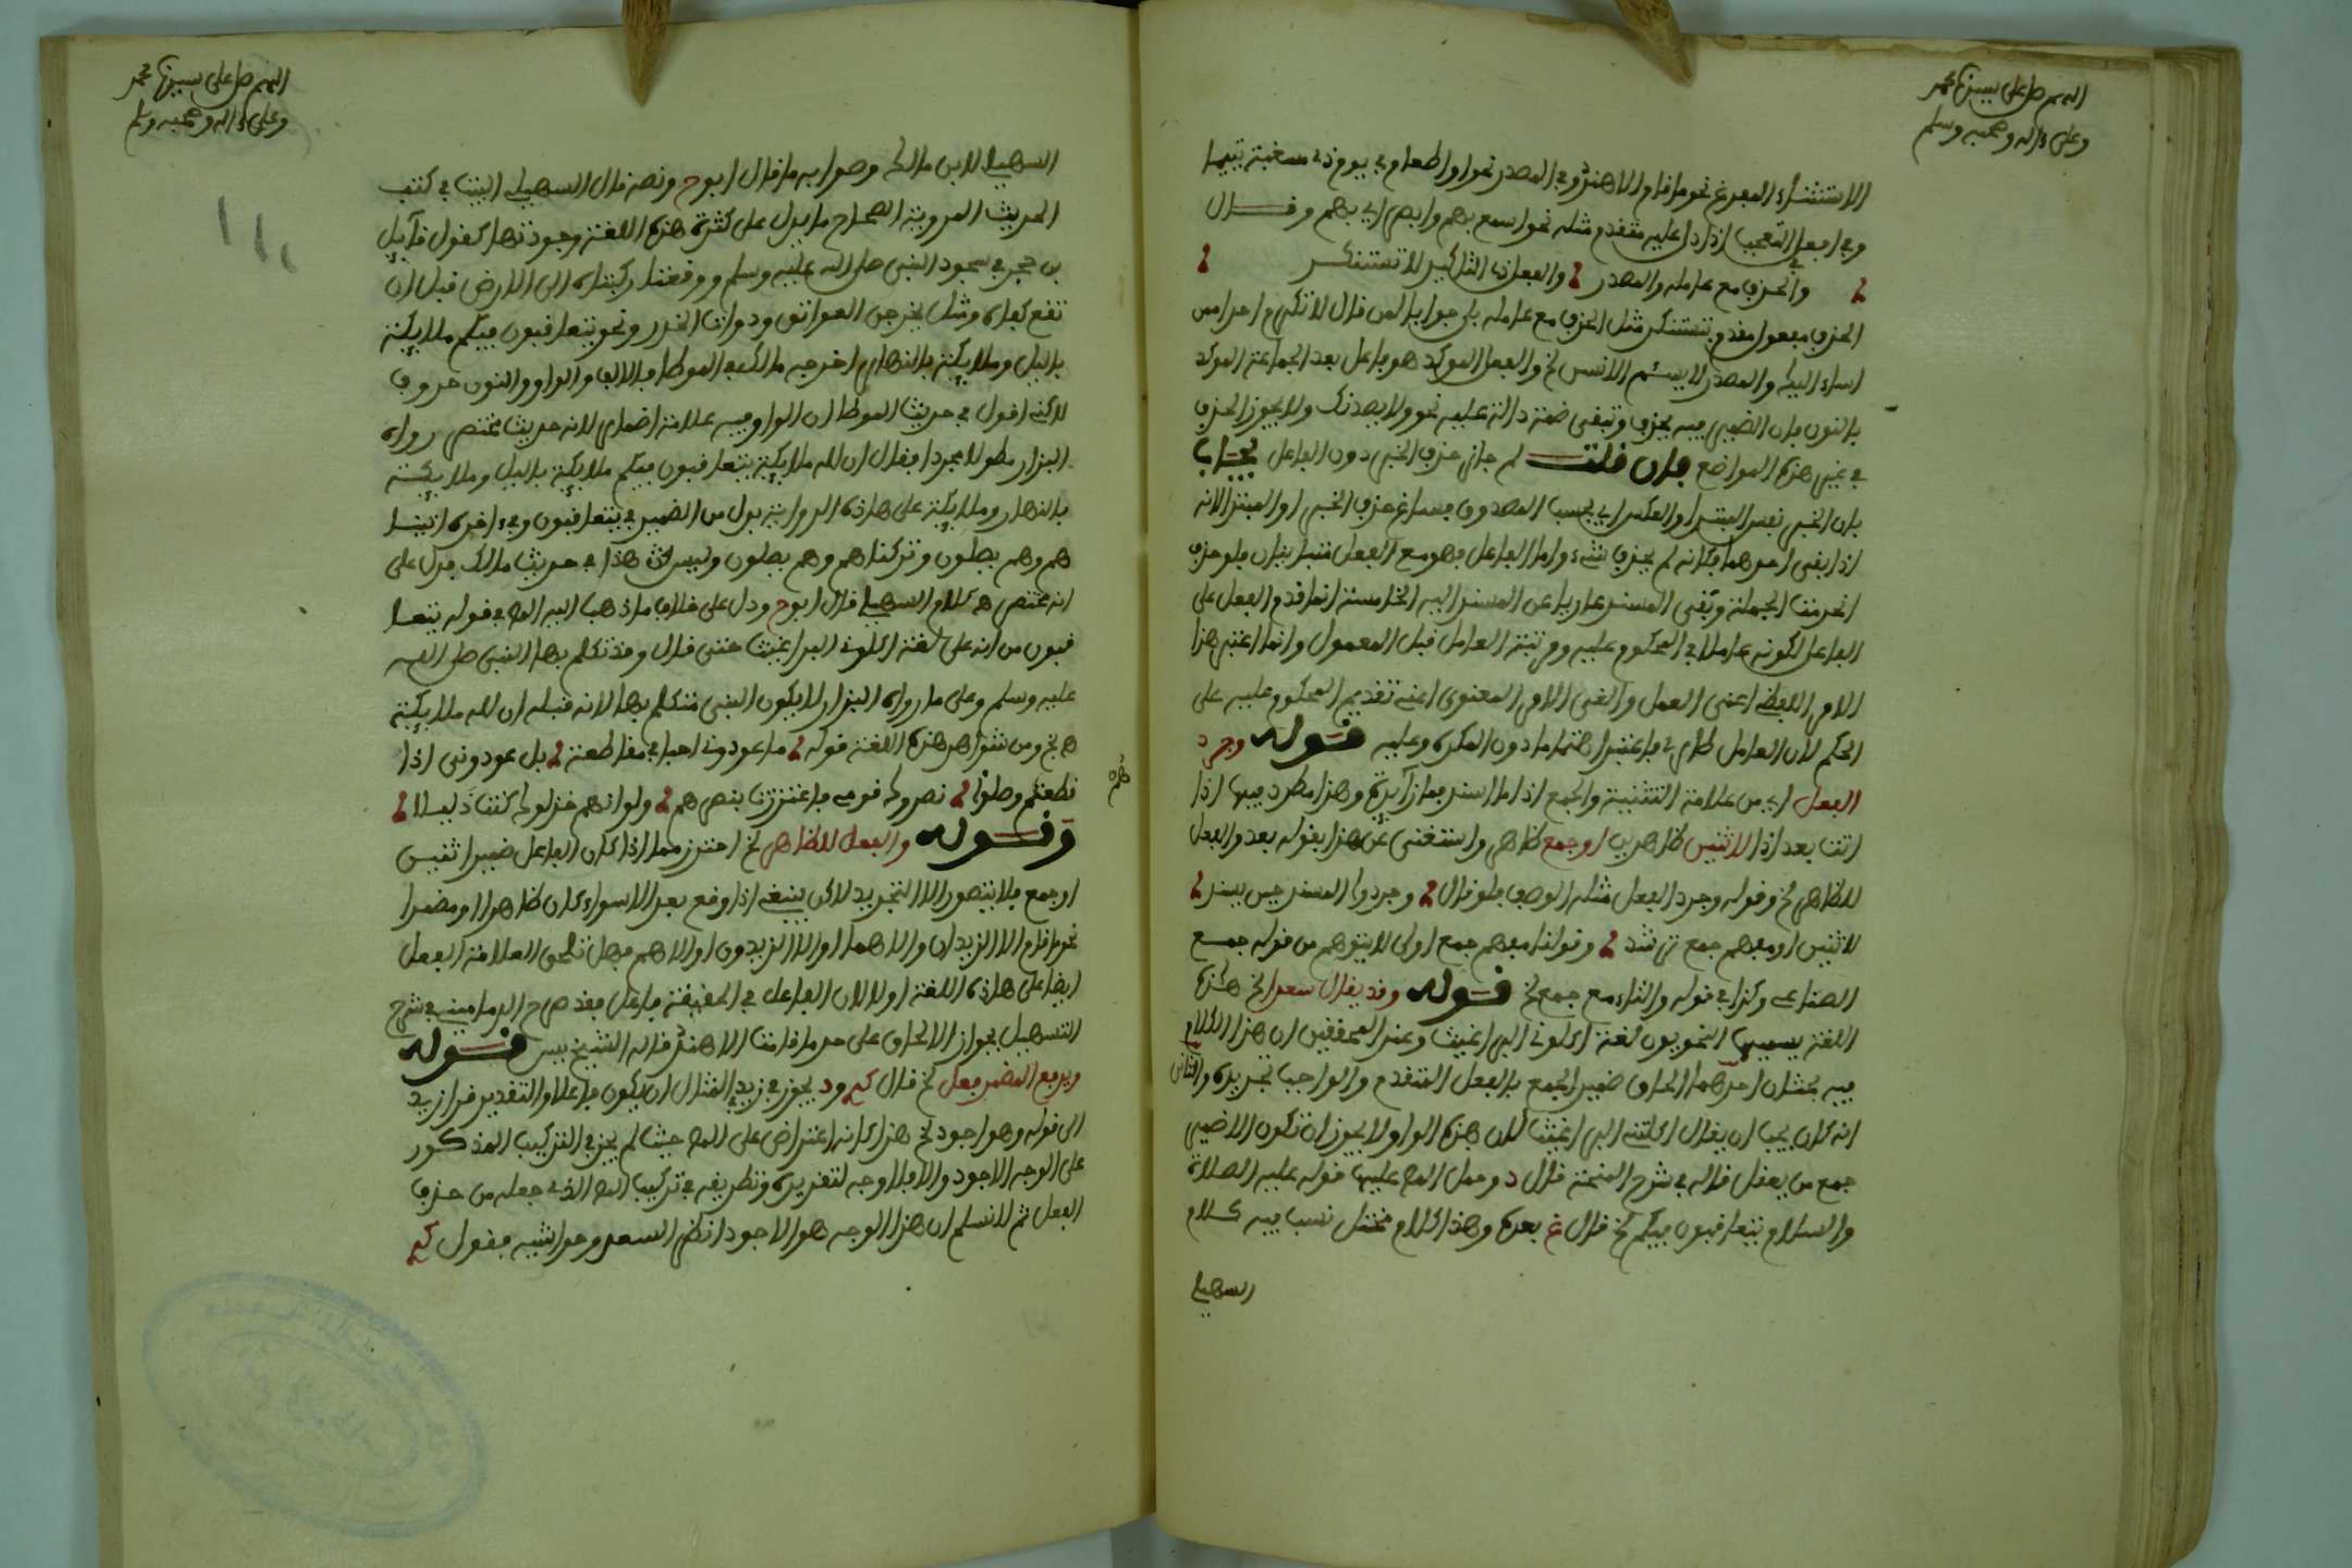 اللهم صل على سيدنا محمد
وعلى ءاله وصحبه وسلم
الاستثناء المفرغ نحو ما قام الا هند وفي المصدر نحو او اطعام في يوم ذي مسغبة يتيما
وفي افعل التعجب اذا دل عليه متقدم مثله نحو اسمع بهم وابصر اي بهم وقال
والحذف مع عامله والمصدر والفعل ذي التاكيد لا تستنكر
الحذف مفعول مقدم بتستنكر مثل الحذف مع عامله بلى جوابا لمن قال لا تكرم احدا من
اساء اليك والمصدر لا يسئم الانسن الخ والفعل الموكد هو فاعل بعد الجماعة الموكد
بالنون فان الضمير فيه يحذف وتبقى ضمة دالة عليه نحو ولا يصدنك ولا يجوز الحذف
في غير هذه المواضع فان قلت لم جاز حذف الخبر دون الفاعل يجاب
بان الخبر نفس المبتدا والعكس اي بحسب المصدوق فساغ حذف الخبر او المبتدا لانه
اذا بقي احدهما فكانه لم يحذف شيء واما الفاعل فهو مع الفعل متباينان فلو حذف
انخرمت الجملة وبقى المسند عاريا عن المسند اليه الخامسة انما قدم الفعل على
الفاعل لكونه عاملا في المحكوم عليه ومرتبة العامل قبل المعمول وانما اعتبر هذا
الامر اللفظي اعني العمل والغي الامر المعنوي اعني تقديم المحكوم عليه على
الحكم لان العامل طار فاعتبر اهتماما دون المكره وعليه قوله وجرد
الفعل اي من علامة التثنية والجمع اذا ما اسند فما زائدة وهذا مطرد فيها اذا
اتت بعد اذا لاثنين ظاهرين او جمع ظاهر واستغنى عن هذا بقوله بعد والفعل
للظاهر الخ وقوله وجرد الفعل مثله الوصف فلو قال وجردوا المسند حين يسند
لاثنين او مفهم جمع ترشد وقولنا مفهم جمع اولى لا يتوهم من قوله جمع
الصناعي وكذا في قوله والتاء مع جمع الخ قوله وقد يقال سعدا الخ هذه
اللغة يسميها النحويون لغة اكلوني البراغيث وعند المحققين ان هذا الكلام
فيه بحثان احدهما الحاق ضمير الجمع بالفعل المتقدم والواجب تجريده والثاني
انه كان يجب ان يقال اكلتني البراغيث لان هذه الواو لا يجوز ان تكون الا ضمير
جمع من يعقل قاله في شرح المنحة قال د وحمل المص عليها قوله عليه الصلاة
والسلام يتعاقبون فيكم الخ قال غ بعده وهذا كلام مختل نسب فيه كلام
السهيلي
اللهم صل على سيدنا محمد
وعلى ءاله وصحبه وسلم
السهيلي لابن مالك وصوابه ما قال ابوح ونصه قال السهيلي الفيت في كتب
الحديث المروية الصحاح ما يدل على كثرة هذه اللغة وجودتها كقول وآيل
بن حجر في سجود النبي صلى الله عليه وسلم ووقعتا ركبتاه الى الارض قبل ان
تقع كفاه ومثل يخرجن العواتق وذوات الخدر ونحو يتعاقبون فيكم ملايكة
بالليل وملايكة بالنهار اخرجه مالك في الموطا فالالف والواو والنون حروف
لاكني اقول في حديث الموطا ان الواو فيه علامة اضمار لانه حديث مختصر رواه
البزار مطولا مجردا فقال ان لله ملايكة يتعاقبون فيكم ملايكة بالليل وملايكة
بالنهار وملايكة على هاذه الرواية بدل من الضمير في يتعاقبون وفي ءاخره اتينا
هم وهم يصلون وتركناهم وهم يصلون وليس هذا في حديث مالك فدل على
انه مختصر ه كلام السهيلي قال ابوح ودل على خلاف ما ذهب اليه المص في قوله يتعا
قبون من انه على لغة اكلوني البراغيث حتى قال وقد تكلم بها النبي صلى الله
عليه وسلم وعلى ما رواه البزار لا يكون النبي متكلم بها لانه قبله ان لله ملايكة
ه الخ ومن شواهد هذه اللغة قوله ما عودوني احبائي مقاطعة بل عودوني اذا
قطعتم وصلوا نصروك قومي فاعتززت بنصرهم ولو انهم خذلوك كنت ذليلا
وقوله والفعل للظاهر الخ احترز مما اذا كان الفاعل ضمير اثنين
او جمع فلا يتصور الا التجريد لاكن ينبغي اذا وقع بعد الا سواء كان ظاهرا او مضمرا
نحو ما قام الا الزيدان والا هما او الا الزيدون او الا هم فهل تلحق العلامة الفعل
ايضا على هاذه اللغة اولا لان الفاعل في الحقيقة فاعل فقد صرح الدماميني في شرح
التسهيل بجواز الالحاق على حد ما قامت الا هند قاله الشيخ يس قوله
ويرفع المضمر فعل الخ قال كم ود يجوز في زيد في المثال ان يكون فاعلا والتقدير قرا زيد
الى قوله وهو اجود الخ هذا كانه اعتراض على المص حيث لم يجز في التركيب المذكور
على الوجه الاجود والا فلا وجه لتقديره وتطريقه في تركيب المص الذي جعله من حذف
الفعل ثم لا نسلم ان هذا الوجه هو الاجود انظر السعد وحواشيه فقول كم